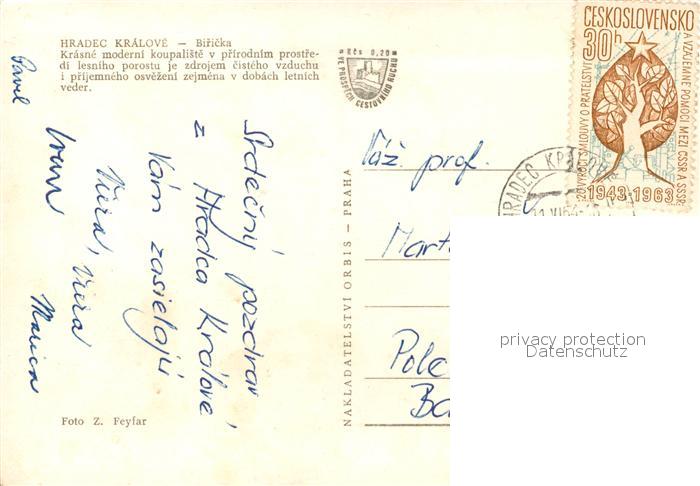 HRADEC KRÁLOVÉ — Biřička
Krásné moderní koupaliště v přírodním prostře-
dí lesního porostu je zdrojem čistého vzduchu
i příjemného osvěžení zejména v dobách letních
veder.
Kčs 0,20
VE PROSPĚCH CESTOVNÍHO RUCHU
ČESKOSLOVENSKO
30h
20. VÝROČÍ SMLOUVY O PŘÁTELSTVÍ
A VZÁJEMNÉ POMOCI MEZI ČSSR A SSSR
1943-1963
HRADEC KRÁLOVÉ
Srdečný pozdrav
z Hradca Králové
Vám zasielajú
Viera, Viera
Ivan
Marica
Pavel
NAKLADATELSTVÍ ORBIS — PRAHA
Váž. prof.
Mart
Pole
Ba
privacy protection
Datenschutz
Foto Z. Feyfar